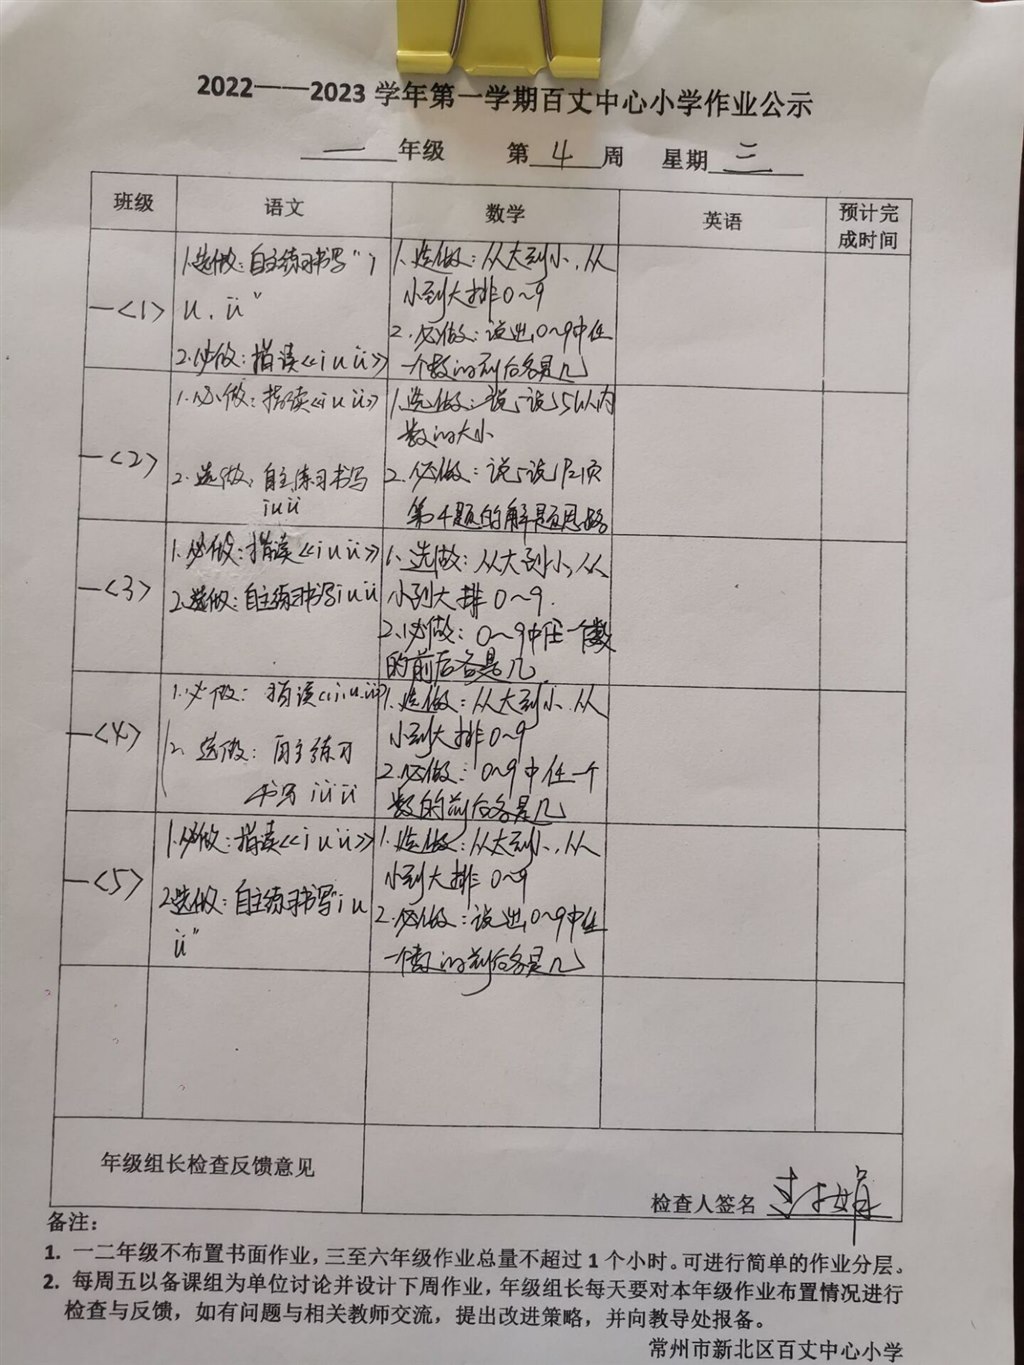 2022——2023 学年第一学期百丈中心小学作业公示
一年级 第4周 星期三
班级 语文 数学 英语 预计完
成时间
一<1>
1.选做：自主练习书写“i
u.ü”
2.必做：指读《i u ü》
1.选做：从大到小,从
小到大排0~9
2.必做：说出0~9中任
一个数的前后各是几
一<2>
1.必做：指读《i u ü》
2.选做：自主练习书写
i u ü
1.选做：说一说5以内
数的大小
2.必做：说一说P21页
第4题的解题思路
一<3>
1.必做：指读《i u ü》
2.选做：自主练习书写i u ü
1.选做：从大到小,从
小到大排0~9.
2.必做：0~9中任一个数
的前后各是几.
一<4>
1.必做：指读《i.u.ü》
2.选做：自主练习
书写 i u ü
1.选做：从大到小.从
小到大排0~9
2.必做：0~9中任一个
数的前后各是几
一<5>
1.必做：指读《i u ü》
2.选做：自主练习书写“i u
ü”
1.选做：从大到小,从
小到大排0~9
2.必做：说出0~9中任
一个数的前后各是几
年级组长检查反馈意见
检查人签名
备注：
1. 一二年级不布置书面作业，三至六年级作业总量不超过 1 个小时。可进行简单的作业分层。
2. 每周五以备课组为单位讨论并设计下周作业，年级组长每天要对本年级作业布置情况进行
检查与反馈，如有问题与相关教师交流，提出改进策略，并向教导处报备。
常州市新北区百丈中心小学